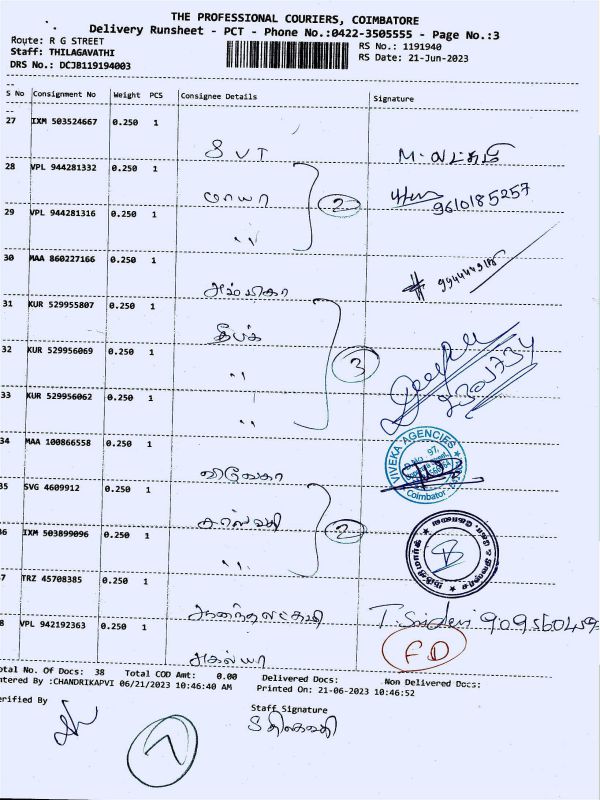 THE PROFESSIONAL COURIERS, COIMBATORE
Delivery Runsheet - PCT - Phone No.:0422-3505555 - Page No.:3
Route: R G STREET
Staff: THILAGAVATHI
DRS No.: DCJB119194003
RS No.: 1191940
RS Date: 21-Jun-2023
S No Consignment No Weight PCS Consignee Details Signature
27 IXM 503524667 0.250 1
S V T
28 VPL 944281332 0.250 1
மாயா 2 9610185257
29 VPL 944281316 0.250 1
,,
30 MAA 860227166 0.250 1
அம்பிகா
31 KUR 529955807 0.250 1
தீபக்
32 KUR 529956069 0.250 1
,, 3
33 KUR 529956062 0.250 1
,,
34 MAA 100866558 0.250 1
விவேகா
VIVEKA AGENCIES
Coimbatore
35 SVG 4609912 0.250 1
2
36 IXM 503899096 0.250 1
,,
37 TRZ 45708385 0.250 1
ஆனந்தலட்சுமி
38 VPL 942192363 0.250 1
அகல்யா
FD
Total No. Of Docs: 38 Total COD Amt: 0.00 Delivered Docs: Non Delivered Docs:
Entered By :CHANDRIKAPVI 06/21/2023 10:46:40 AM Printed On: 21-06-2023 10:46:52
Verified By
Staff Signature
7